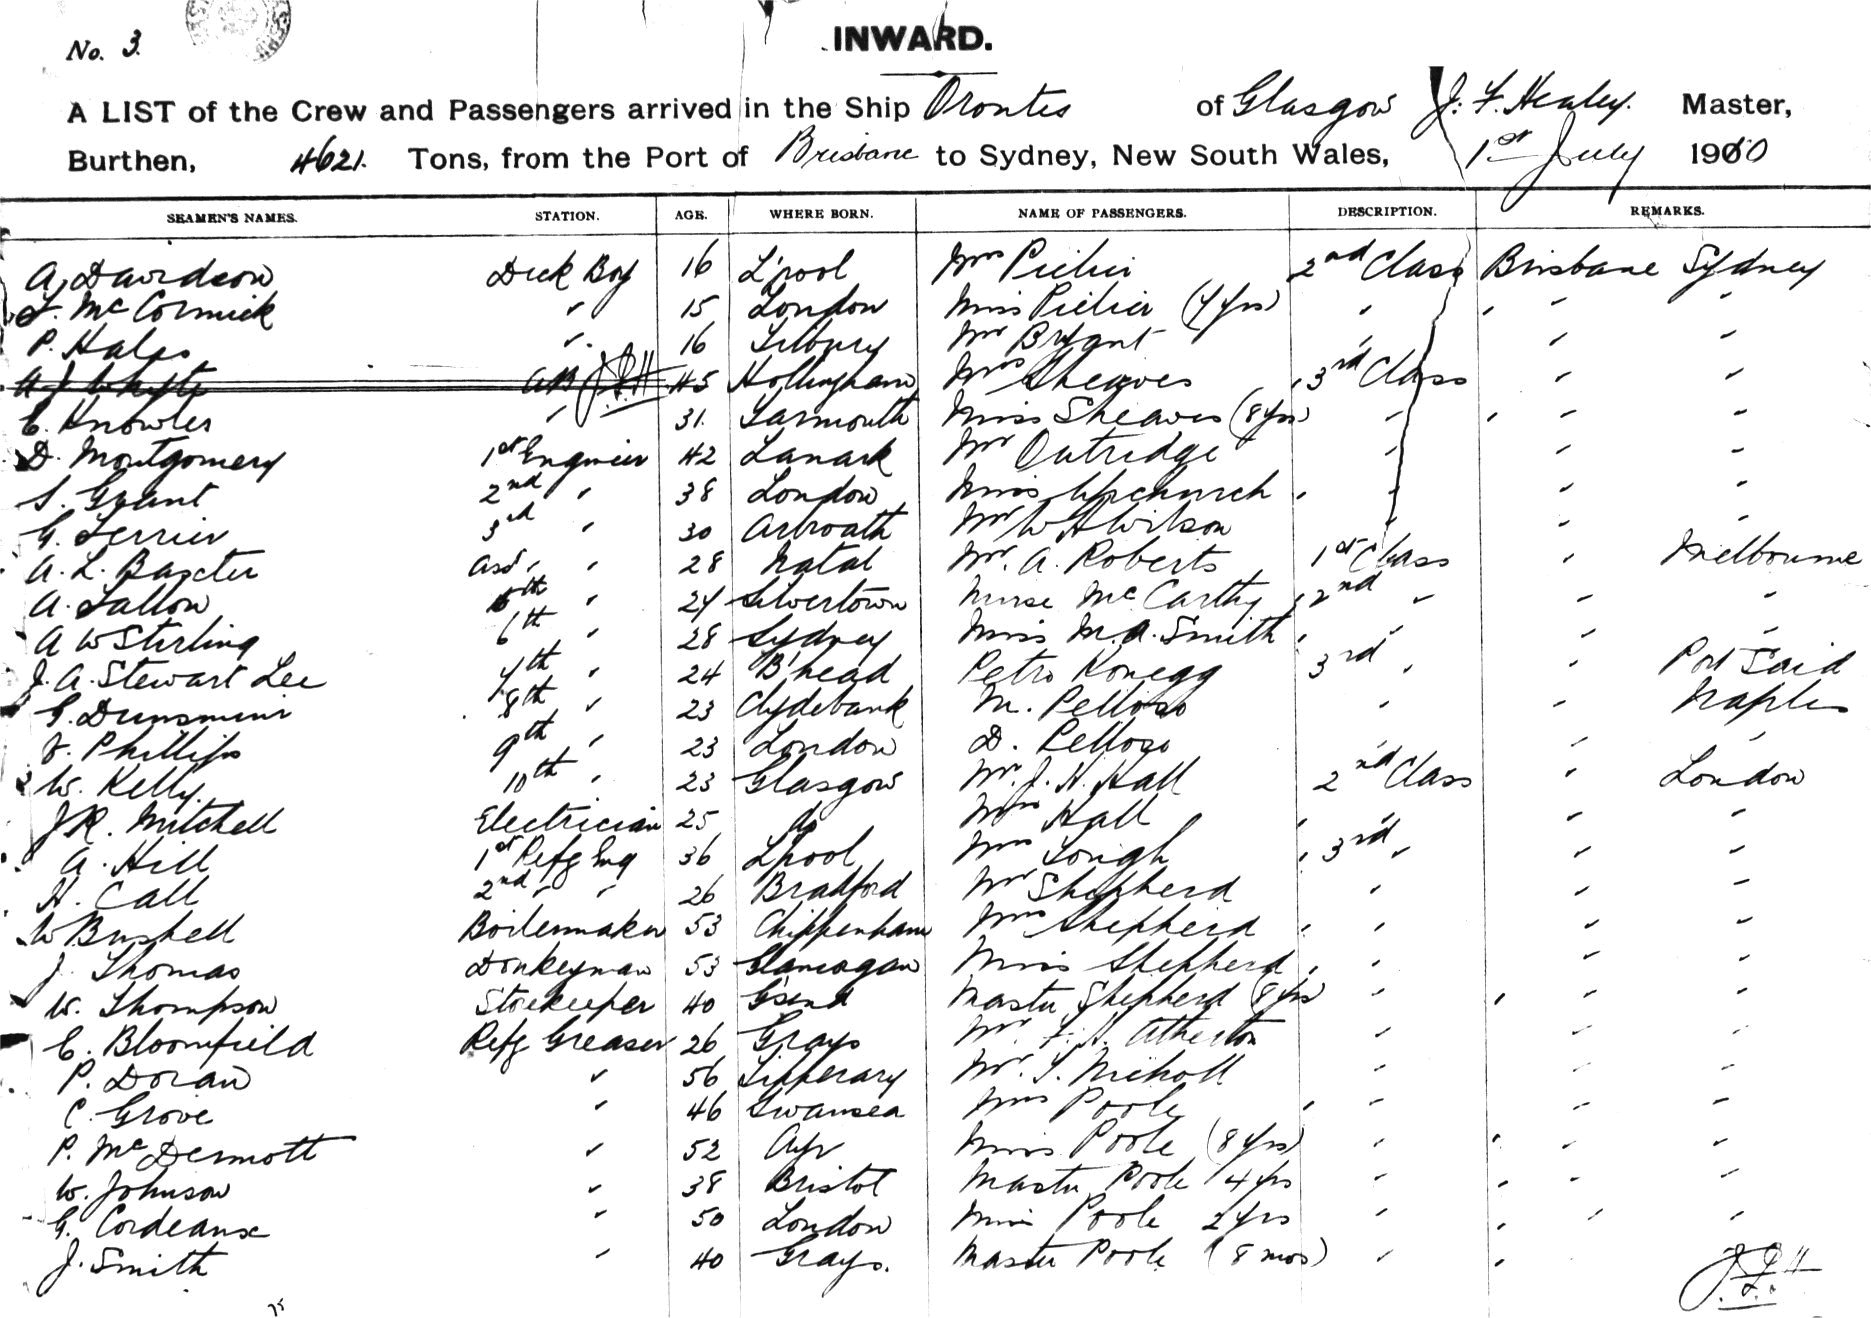 No. 3.
INWARD.
A LIST of the Crew and Passengers arrived in the Ship Orontes of Glasgow J. F. Healey. Master,
Burthen, 4621. Tons, from the Port of Brisbane to Sydney, New South Wales, 1st July 1900
SEAMEN'S NAMES. STATION. AGE. WHERE BORN. NAME OF PASSENGERS. DESCRIPTION. REMARKS.
A. Davidson Deck Boy 16 L'pool Mrs 2nd Class Brisbane Sydney
McCormick " 15 London Miss (4 yrs) " " " "
P. Hales " 16 Tilbury Mr Bryant " " "
A J Whyte AB JFH 45 Hollingham Mrs Sheaves 3rd Class " "
C. Knowles " 31. Yarmouth Miss Sheaves (8 yrs) " " " "
D. Montgomery 1st Engineer 42 Lanark Mr Outridge " " "
S. Grant 2nd " 38 London Miss Upchurch " " "
G. Ferrier 3rd " 30 Arbroath Mr W H Wilson " " "
A. L. Baxter " " 28 Natal Mr. A. Roberts 1st Class " Melbourne
A. Fallow 5th " 24 Silvertown Nurse McCarthy 2nd " " "
A W Stirling 6th " 28 Sydney Miss M. A. Smith " " "
J. A. Stewart Lee 7th " 24 B'head Petro Konegg 3rd " " Port Said
G. Dunsmuir 8th " 23 Clydebank M. Pelloso " " Naples
Phillips 9th " 23 London D. Pelloso " " "
W. Kelly 10th " 23 Glasgow Mr. J. H. Hall 2nd Class " London
J R. Mitchell Electrician 25 do Mrs Hall " " "
A. Hill 1st Refg Eng 36 L'pool Mrs Tough 3rd " " "
H. Call 2nd " " 26 Bradford Mr Shepherd " " "
W Bushell Boilermaker 53 Chippenham Mrs Shepherd " " "
J. Thomas Donkeyman 53 Glamorgan Miss Shepherd " " "
W. Thompson Storekeeper 40 G'send Master Shepherd (8 yrs) " " " "
C. Bloomfield Refg Greaser 26 Grays Mr. F. A. Atherton " " "
P. Doran " 56 Tipperary Mr. T. Nicholl " " "
C. Grove " 46 Swansea Mrs Poole " " "
P. McDermott " 52 Ayr Miss Poole (8 yrs) " " " "
W. Johnson " 38 Bristol Master Poole 4 yrs " " " "
G. Cordeaux " 50 London Miss Poole 2 yrs " " " "
J. Smith " 40 Grays. Master Poole (8 mos) " "
JFH